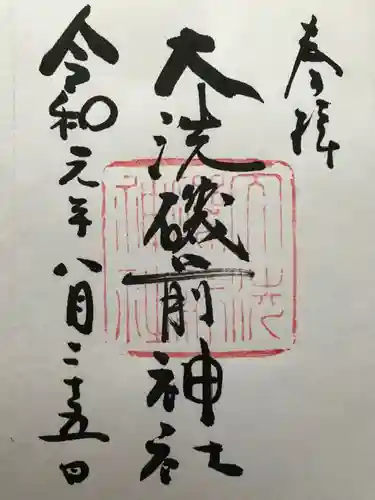 奉拝
大洗磯前神社
令和元年八月二十五日